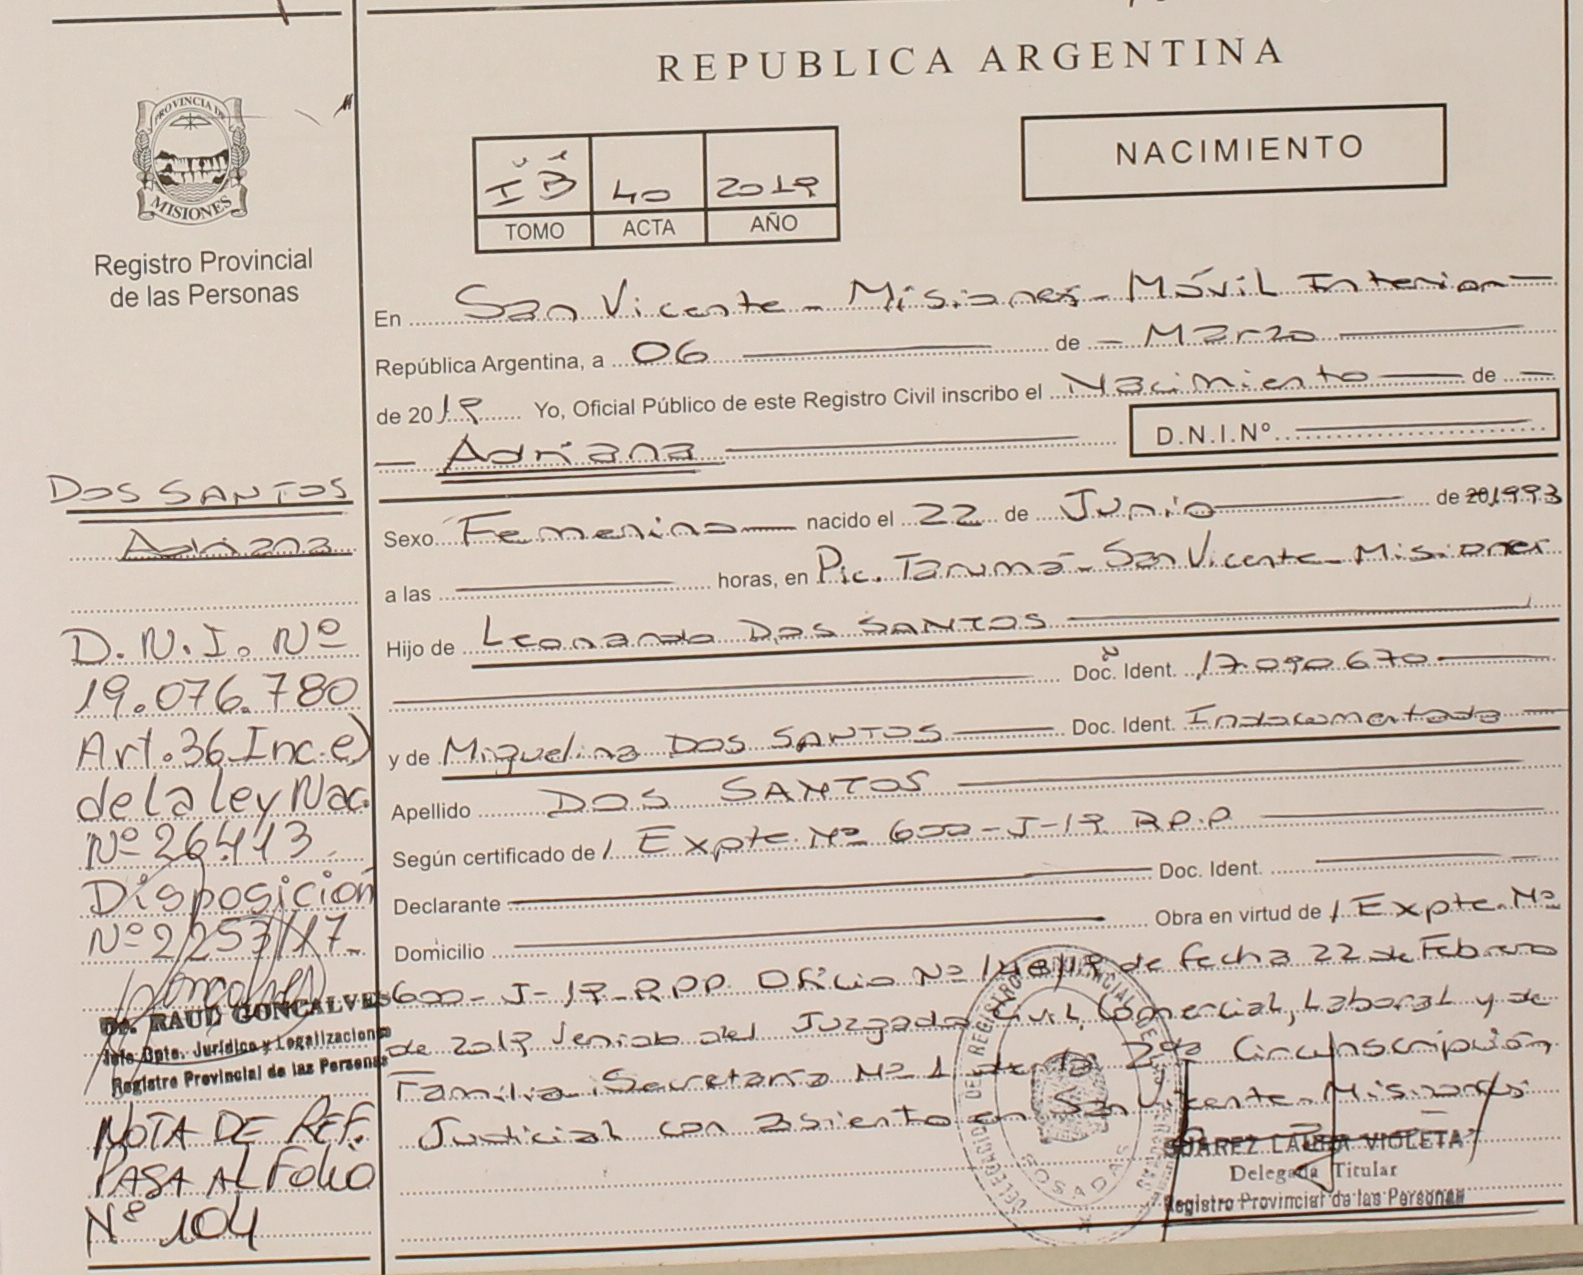 REPUBLICA ARGENTINA
PROVINCIA DE
MISIONES
Registro Provincial
de las Personas
NACIMIENTO
I B 40 2019
TOMO ACTA AÑO
En San Vicente - Misiones - Móvil Interior
República Argentina, a 06 de - Marzo
de 2019 Yo, Oficial Público de este Registro Civil inscribo el Nacimiento de
Adriana D.N.I.Nº
Sexo Femenino nacido el 22 de Junio de 20 1993
a las horas, en Pic. Tarumá - San Vicente - Misiones
Hijo de Leonardo DOS SANTOS
Doc. Ident. 17090670
y de Miguelina DOS SANTOS Doc. Ident. Indocumentada
Apellido DOS SANTOS
Según certificado de / Expte. Nº 600-J-19 R.P.P
Declarante Doc. Ident.
Domicilio Obra en virtud de / Expte. Nº
600-J-19-RPP Oficio Nº 148/19 de fecha 22 de Febrero
de 2019 Venido del Juzgado Civil, Comercial, Laboral y de
Familia Secretaría Nº 1 de la 2da Circunscripción
Judicial con asiento en San Vicente - Misiones
SUAREZ LAURA VIOLETA
Delegada Titular
Registro Provincial de las Personas
POSADAS
DOS SANTOS
Adriana
D.N.I. Nº
19.076.780
Art. 36 Inc. e)
de la ley Nac.
Nº 26413
Disposición
Nº 2253/17-
Dr. RAUL GONCALVES
Jefe Dpto. Jurídico y Legalizaciones
Registro Provincial de las Personas
NOTA DE REF.
PASA AL FOLIO
Nº 104